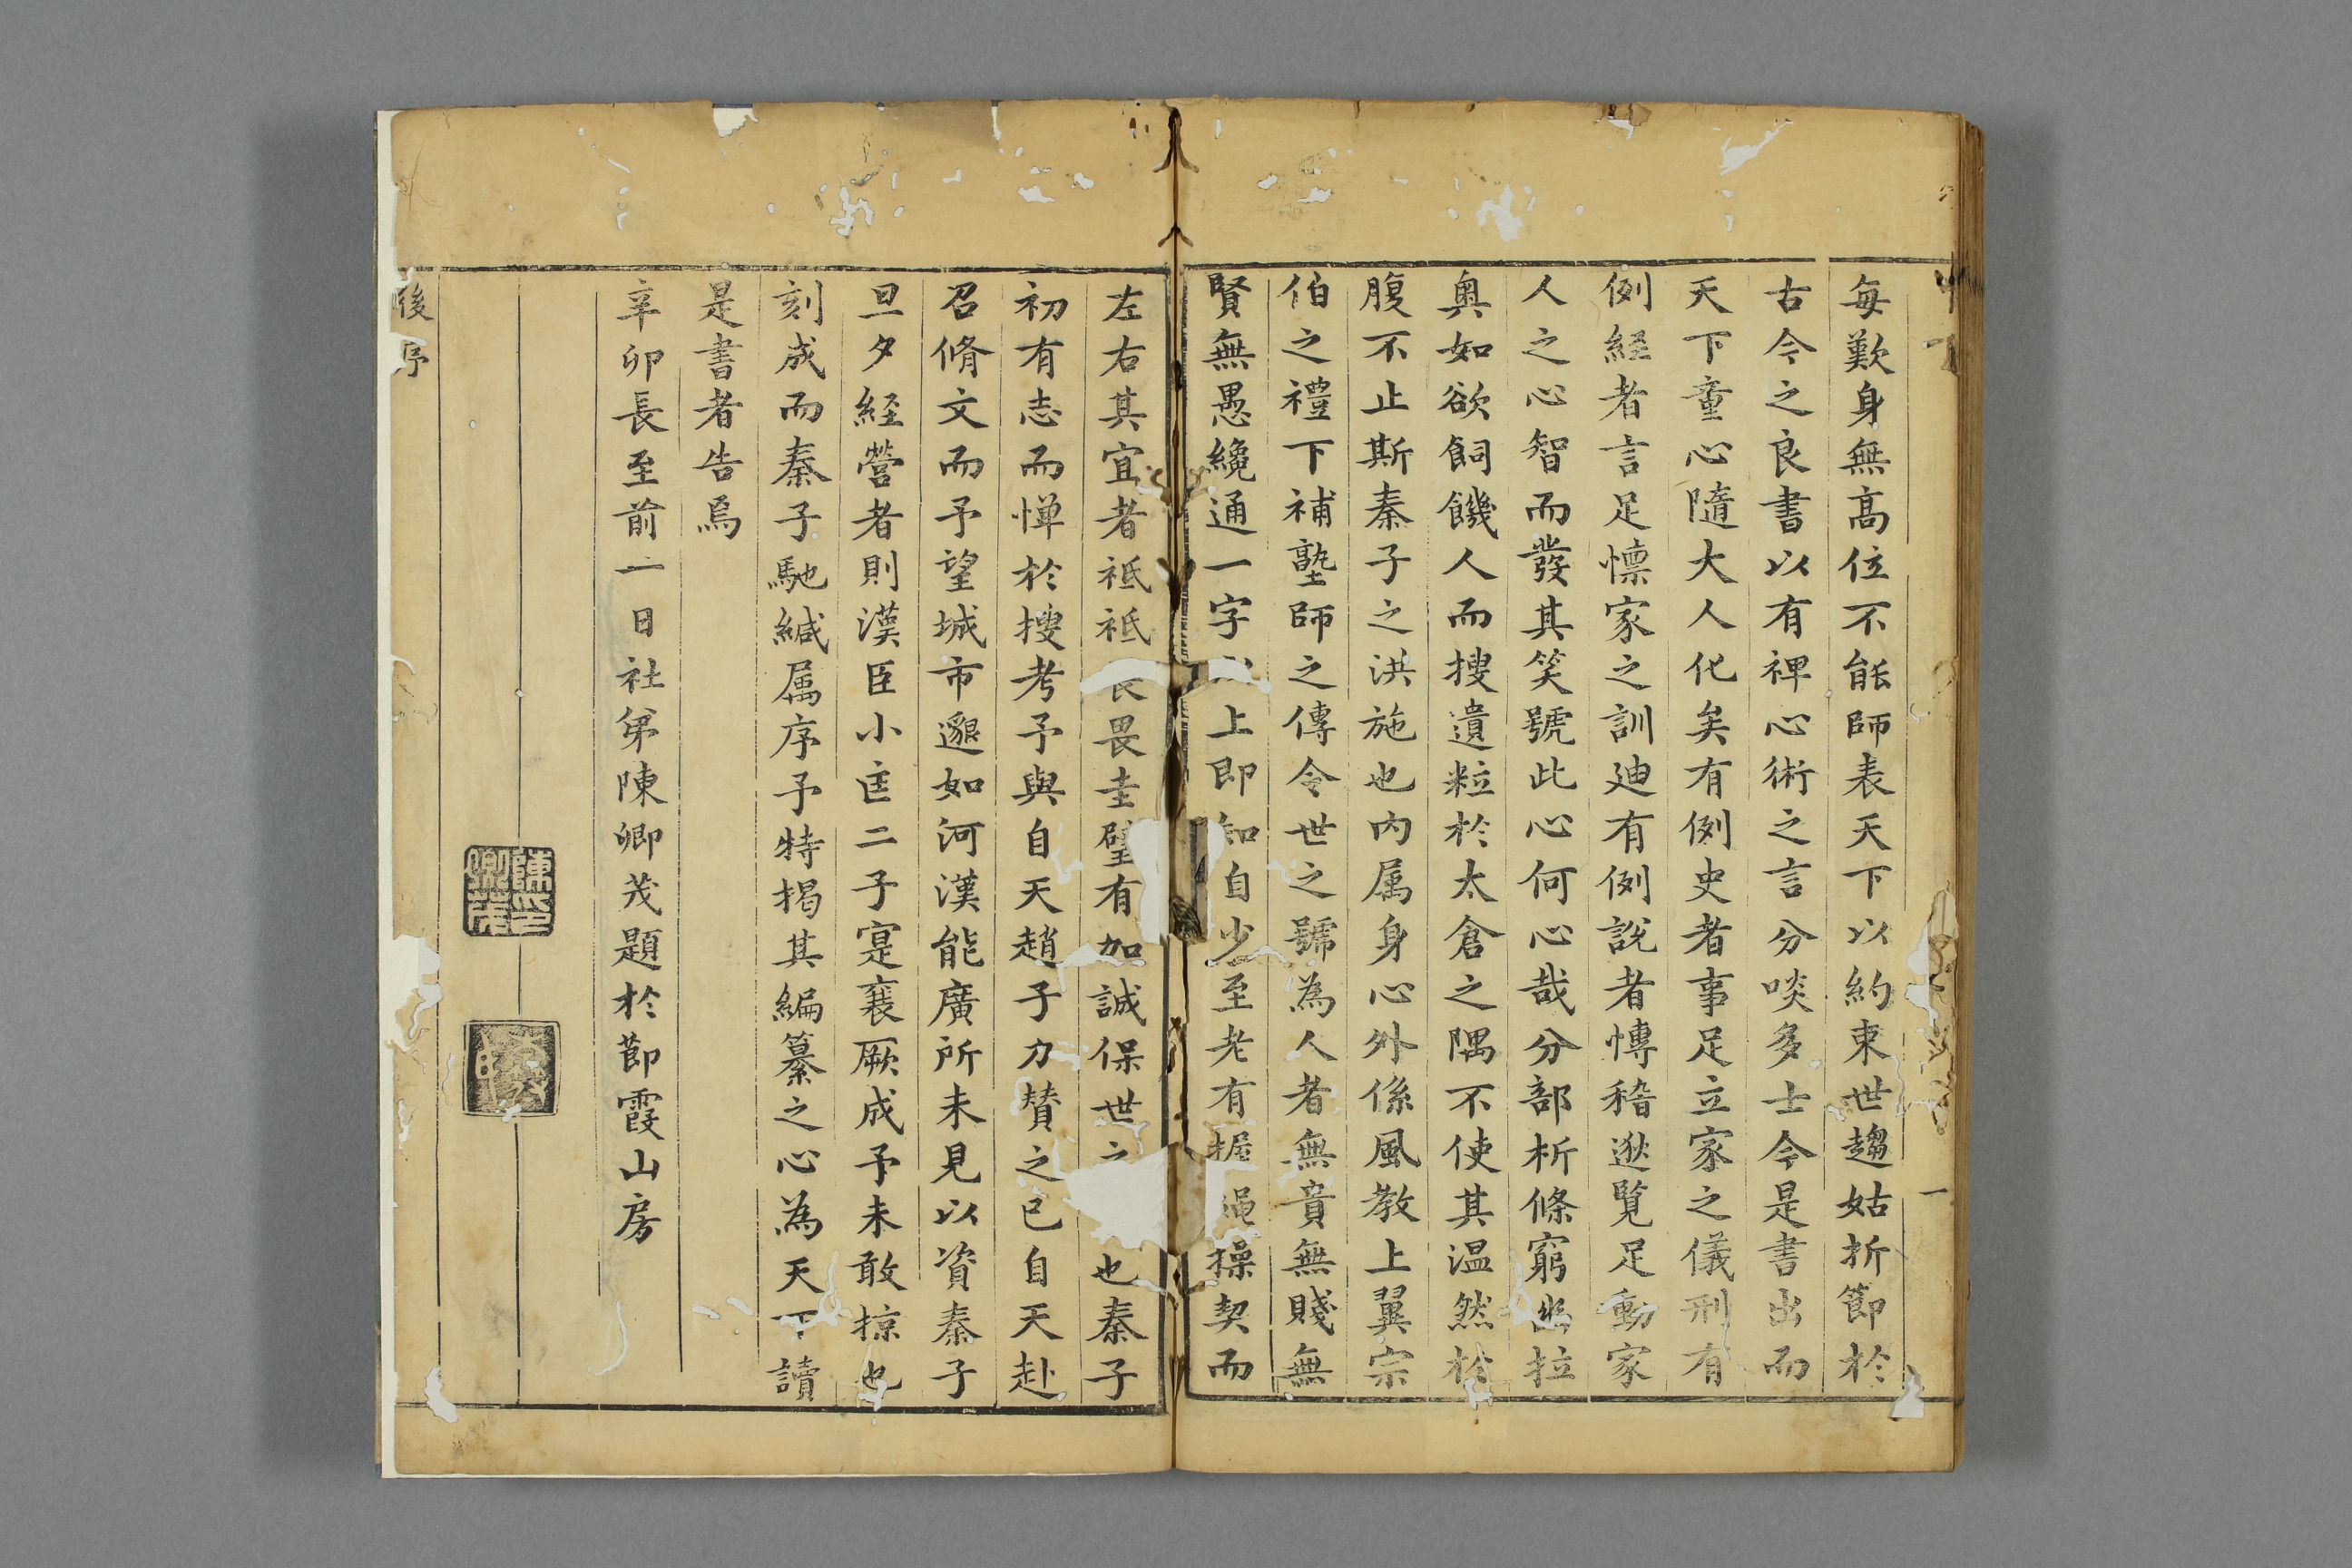 每歎身無高位不能師表天下以約束世趨姑折節於
古今之良書以有裨心術之言分啖多士今是書出而
天下童心隨大人化矣有例史者事足立家之儀刑有
例経者言足懍家之訓廸有例說者慱稽逖覧足動家
人之心智而發其笑號此心何心哉分部析條窮幽拉
奥如欲飼饑人而搜遺粒於太倉之隅不使其温然於
腹不止斯秦子之洪施也内属身心外係風教上翼宗
伯之禮下補塾師之傳令世之號為人者無貴無賤無
賢無愚纔通一字上即知自少至老有握繩操契而
左右其宜者祇祇畏畏圭璧有加誠保世之也秦子
初有志而憚於搜考予與自天趙子力賛之已自天赴
召脩文而予望城市邈如河漢能廣所未見以資秦子
旦夕経營者則漢臣小匡二子寔襄厥成予未敢掠也
刻成而秦子馳緘属序予特掲其編纂之心為天下讀
是書者告焉
辛卯長至前一日社弟陳卿茂題於節霞山房
後序
一